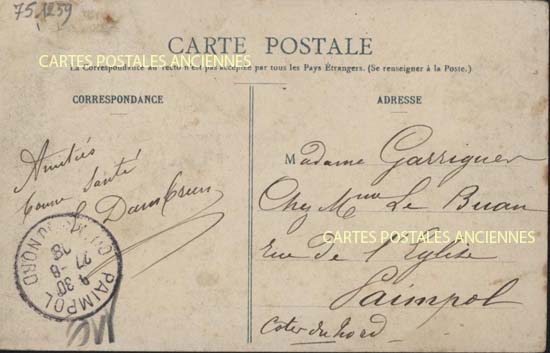 75.1259
CARTE POSTALE
CARTES POSTALES ANCIENNES
La Correspondance au recto n'est pas acceptée par tous les Pays Étrangers. (Se renseigner à la Poste.)
CORRESPONDANCE
ADRESSE
Amitiés
bonne santé
Madame Garriguen
Chez Mme Le Buan
CARTES POSTALES ANCIENNES
Rue de l'Eglise
Paimpol
Cotes du Nord
PAIMPOL
27 -8
DU NORD